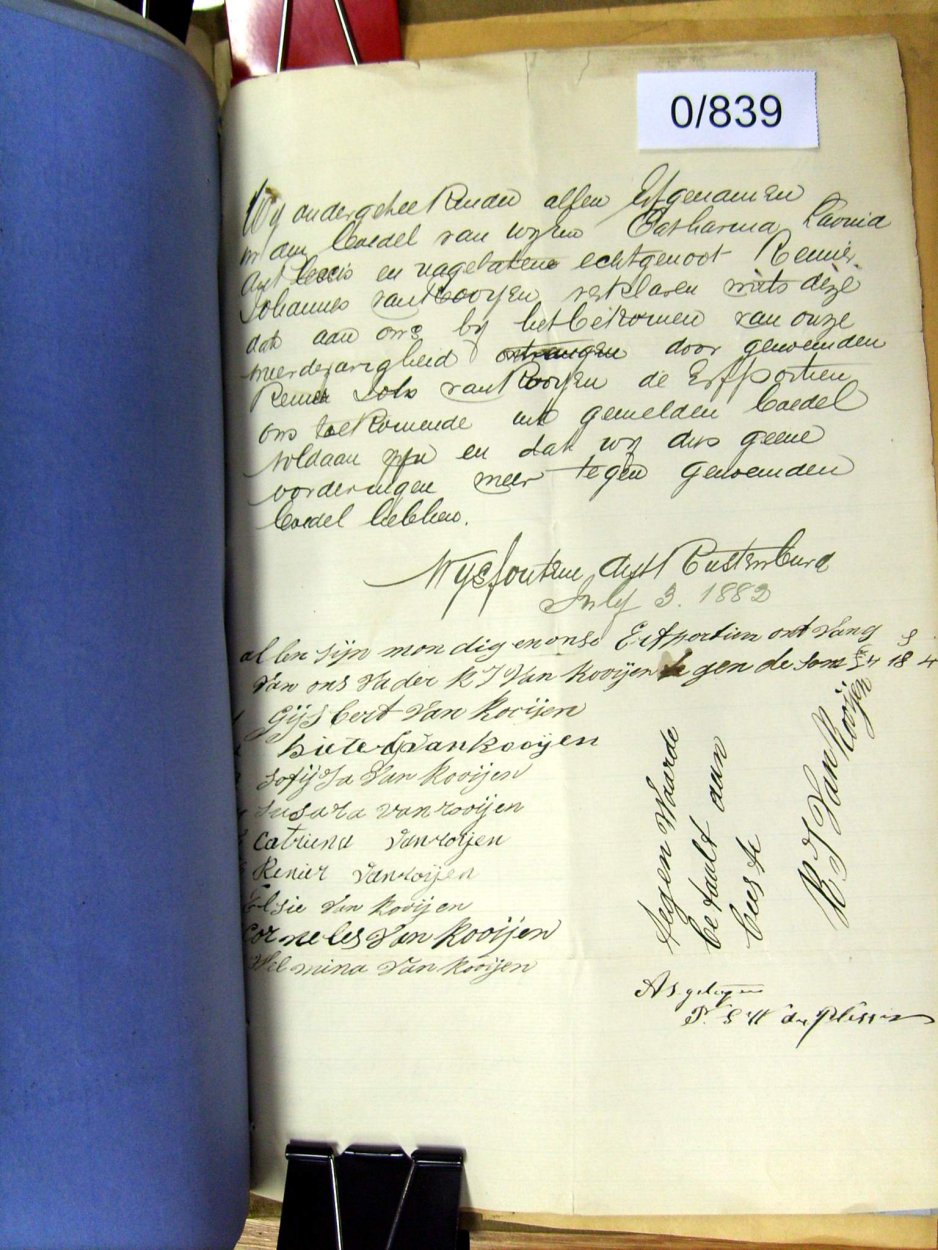 0/839
Wij ondergeteekenden allen Erfgenamen
in den boedel van wylen Catharina Lavina
du Plessis en nagelatene echtgenoot Renier
Johannes van Rooyen verklaren mits deze
dat aan ons by het bekomen van onze
meerderjarigheid door genoemden
Renier Joh van Rooyen de Erfportien
ons toekomende uit gemelden boedel
voldaan zyn en dat wy dus geene
vorderingen meer tegen genoemden
boedel hebben.
Wysfontein dist Rustenburg
July 3. 1882
allen sijn mondig en onse Erfportien ont vang
Van ons Vader R J Van Rooijen gen de som £4 18 4
Gijsbert Van Rooijen
Pieter G Van Rooijen
Sofyja Van Rooijen
Susara van rooijen
Catriena Van rooijen
Renier Van rooijen
Elsie Van Rooijen
Corneles Van Rooijen
Wilmina Van Rooijen
tegen Waarde
betaalt aan
beeste
R J Van Rooijen
As getuigen
P. S W du Plessis